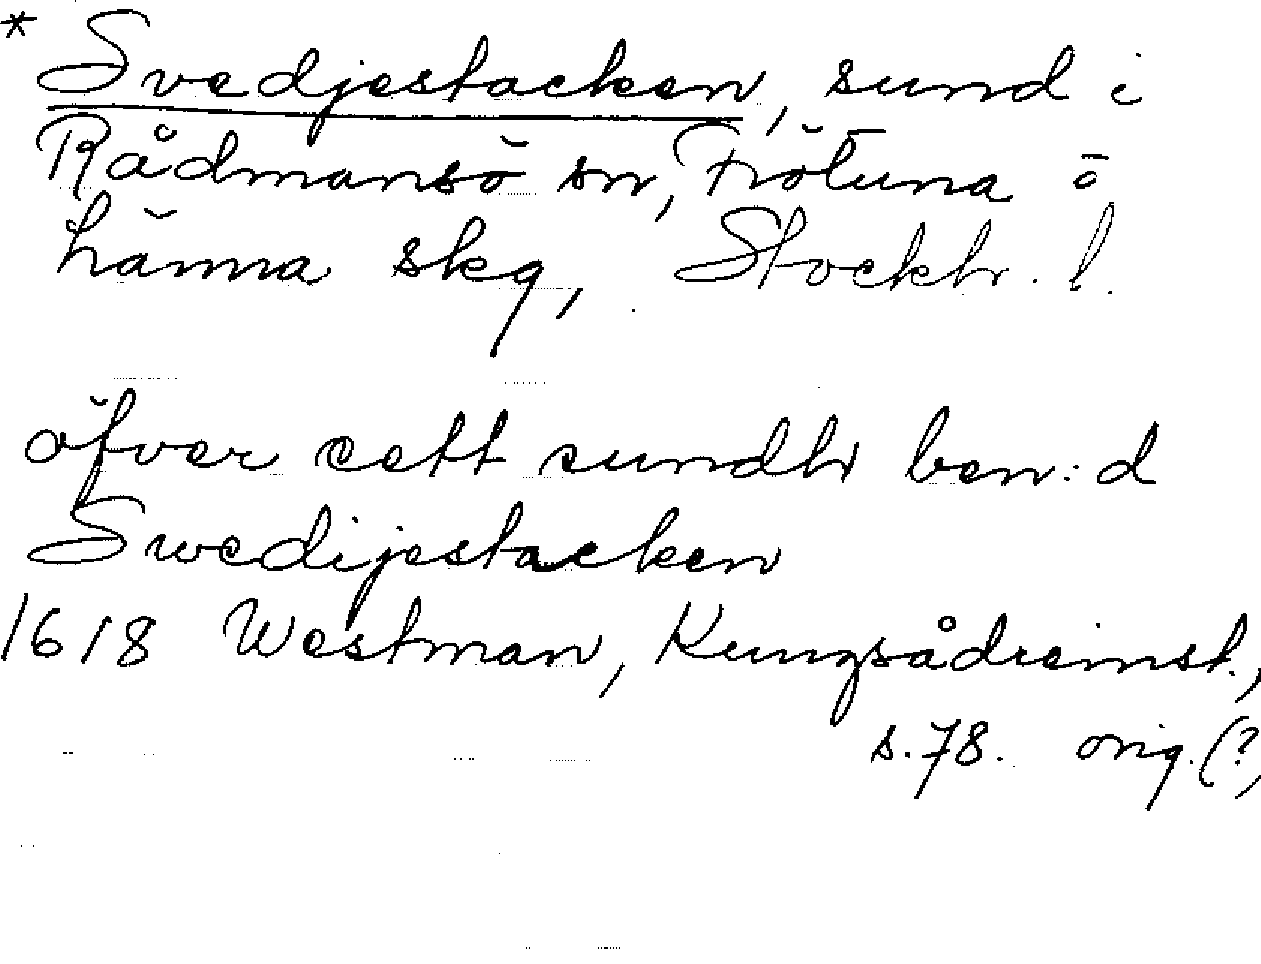 * Svedjestacken, sund i
Rådmansö sn, Frötuna o
Länna skg, Stockh. l.
öfver eett sundh ben:d
Swedijestacken
1618 Westman, Kungsådreinst.,
s.78. orig.(?)